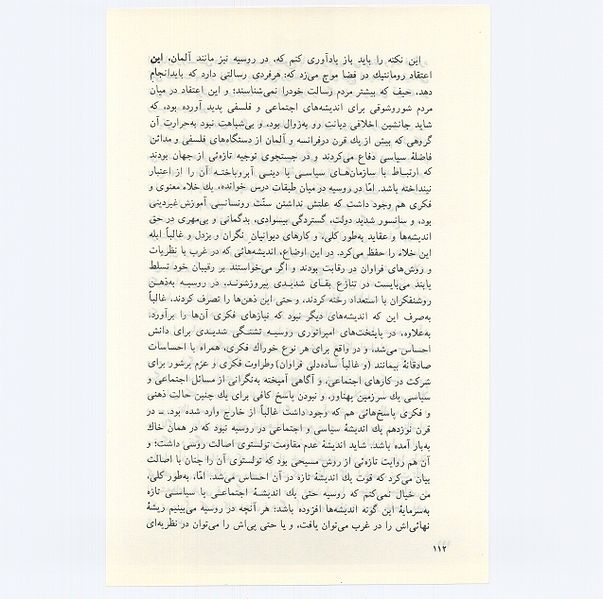 این نکته را باید باز یادآوری کنم که، در روسیه نیز مانند آلمان، این
اعتقاد رومانتیك در فضا موج می‌زد که: هرفردی رسالتی دارد که بایدانجام
دهد، حیف که بیشتر مردم رسالت خودرا نمی‌شناسند؛ و این اعتقاد در میان
مردم شوروشوقی برای اندیشه‌های اجتماعی و فلسفی پدید آورده بود، که
شاید جانشین اخلاقی دیانت رو به‌زوال بود، و بی‌شباهت نبود به‌حرارت آن
گروهی که بیش از یك قرن درفرانسه و آلمان از دستگاه‌های فلسفی و مدائن
فاضلهٔ سیاسی دفاع می‌کردند و در جستجوی توجیه تازه‌ئی از جهان بودند
که ارتباط با سازمان‌های سیاسی یا دینی آبروباخته آن را از اعتبار
نینداخته باشد. امّا در روسیه در میان طبقات درس خوانده، یك خلاء معنوی و
فکری هم وجود داشت که علتش نداشتن سنّت رونسانسی آموزش غیردینی
بود، و سانسور شدید دولت، گستردگی بیسوادی، بدگمانی و بی‌مهری در حق
اندیشه‌ها و عقاید به‌طور کلی، و کارهای دیوانیان نگران و بزدل و غالباً ابله
این خلاء را حفظ می‌کرد. در این اوضاع، اندیشه‌هائی که در غرب با نظریات
و روش‌های فراوان در رقابت بودند و اگر می‌خواستند بر رقیبان خود تسلط
یابند می‌بایست در تنازع بقای شدیدی پیروزشوند، در روسیه به‌ذهن
روشنفکران با استعداد رخنه کردند، و حتی این ذهن‌ها را تصرف کردند، غالباً
به‌صرف این که اندیشه‌های دیگر نبود که نیازهای فکری آن‌ها را برآورد.
به‌علاوه، در پایتخت‌های امپراتوری روسیه تشنگی شدیدی برای دانش
احساس می‌شد، و در واقع برای هر نوع خوراك فکری، همراه با احساسات
صادقانهٔ بیمانند (و غالباً ساده‌دلی فراوان) وطراوت فکری و عزم پرشور برای
شرکت در کارهای اجتماعی، و آگاهی آمیخته به‌نگرانی از مسائل اجتماعی و
سیاسی یك سرزمین پهناور، و نبودن پاسخ کافی برای یك چنین حالت ذهنی
و فکری پاسخ‌هائی هم که وجود داشت غالباً از خارج وارد شده بود. ــ در
قرن نوزدهم یك اندیشهٔ سیاسی و اجتماعی در روسیه نبود که در همان خاك
به‌بار آمده باشد. شاید اندیشهٔ عدم مقاومت تولستوی اصالت روسی داشت؛ و
آن هم روایت تازه‌ئی از روش مسیحی بود که تولستوی آن را چنان با اصالت
بیان می‌کرد که قوت یك اندیشهٔ تازه در آن احساس می‌شد. امّا، به‌طور کلی،
من خیال نمی‌کنم که روسیه حتی یك اندیشهٔ اجتماعی یا سیاسی تازه
به‌سرمایهٔ این گونه اندیشه‌ها افزوده باشد؛ هر آنچه در روسیه می‌بینیم ریشهٔ
نهائی‌اش را در غرب می‌توان یافت، و یا حتی پی‌اش را می‌توان در نظریه‌ای
۱۱۲